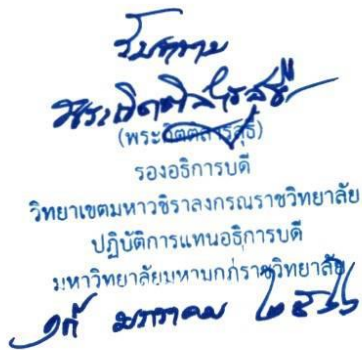 รับทราบ
(พระกิตติสารสุธี)
รองอธิการบดี
วิทยาเขตมหาวชิราลงกรณราชวิทยาลัย
ปฏิบัติการแทนอธิการบดี
มหาวิทยาลัยมหามกุฏราชวิทยาลัย
มกราคม ๒๕๖๖